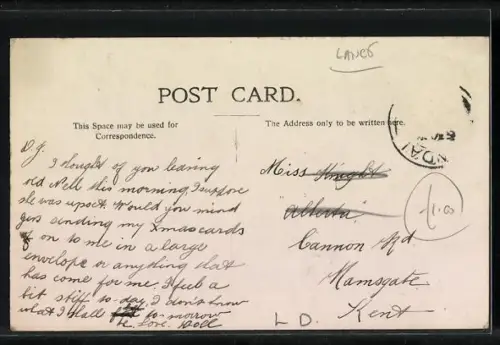 LANCS
POST CARD.
This Space may be used for
Correspondence.
The Address only to be written here.
D. J.
I thought of you leaving
old Nell this morning, I suppose
she was upset. Would you mind
gis sending my Xmas cards
on to me in a large
envelope or anything that
has come for me. I feel a
bit stiff to-day, I don't know
what I shall to-morrow
be. Love. Doll
Miss Knight
Alberta
Cannon Rd
Ramsgate
Kent
NDAL
1/00
L D.